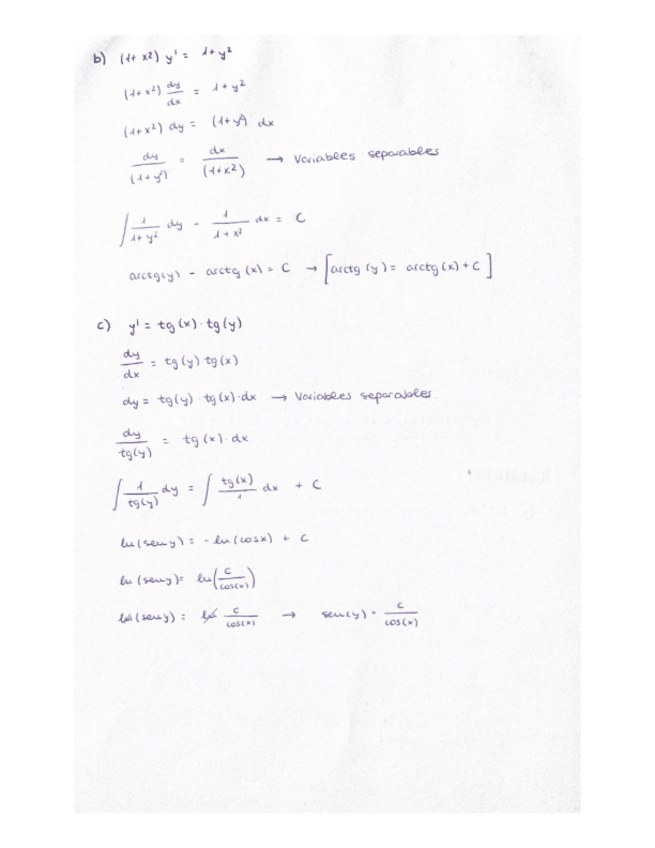 b) (1+x²) y' = 1+y²
(1+x²) dy/dx = 1+y²
(1+x²) dy = (1+y²) dx
dy/(1+y²) = dx/(1+x²) → Variables separables
∫ 1/(1+y²) dy - 1/(1+x²) dx = C
arctg(y) - arctg(x) = C → [arctg(y) = arctg(x) + C]
c) y' = tg(x)·tg(y)
dy/dx = tg(y) tg(x)
dy = tg(y)·tg(x)·dx → Variables separables.
dy/tg(y) = tg(x)·dx
∫ 1/tg(y) dy = ∫ tg(x)/1 dx + C
ln(seny) = -ln(cosx) + C
ln(seny) = ln(C/cos(x))
ln(seny) = ln C/cos(x) → sen(y) = C/cos(x)